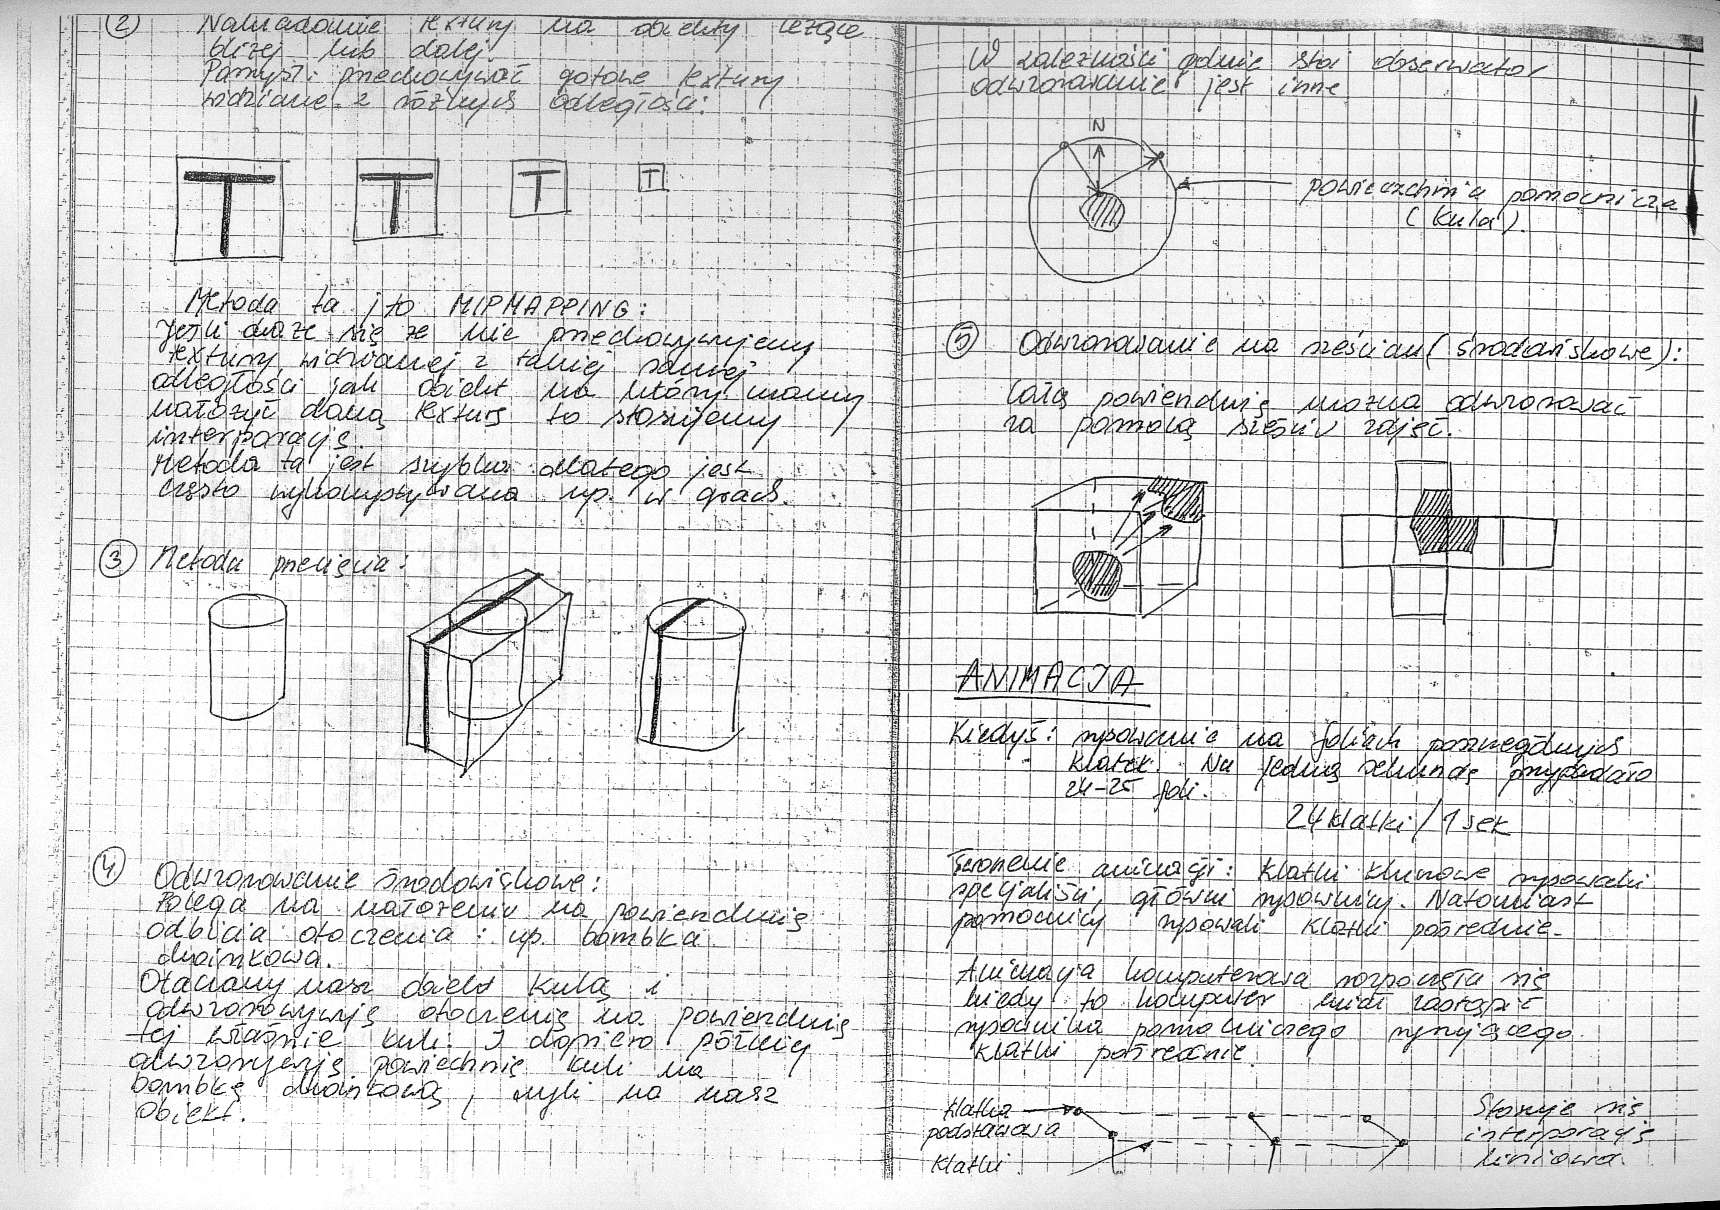 2 Nakładanie textury na obiekty leżące
bliżej lub dalej.
Pomysł: przechowywać gotowe textury
widziane z różnych odległości:
T T T T
Metoda ta j. to MIPMAPPING:
Jeśli okaże się że nie przechowujemy
textury widzianej z takiej samej
odległości jak obiekt na który mamy
nałożyć daną texturę to stosujemy
interpolację.
Metoda ta jest szybka dlatego jest
często wykorzystywana np. w grach.
3 Metoda przecięcia:
4 Odwzorowanie środowiskowe:
Polega na nałożeniu na powierzchnię
odbicia otoczenia: np. bombka
choinkowa.
Otaczamy nasz obiekt kulą i
odwzorowywuję otoczenie na powierzchnię
tej właśnie kuli. I dopiero później
odwzorowuję powierzchnię kuli na
bombkę choinkową, czyli na nasz
obiekt.
W zależności gdzie stoi obserwator
odwzorowanie jest inne.
N
powierzchnia pomocnicza
(kula).
5 Odwzorowanie na sześcian (środowiskowe):
Całą powierzchnię można odwzorować
za pomocą sześciu zdjęć.
ANIMACJA
Kiedyś: rysowanie na foliach poszczególnych
klatek. Na jedną sekundę przypadało
24-25 foli.
24 klatki / 1 sek
Tworzenie animacji: klatki kluczowe rysowali
specjaliści, główni rysownicy. Natomiast
pomocnicy rysowali klatki pośrednie.
Animacja komputerowa rozpoczęła się
kiedy to komputer miał zastąpić
rysownika pomocniczego rysującego
klatki pośrednie.
klatka
podstawowa
klatki
Stosuje się
interpolację
liniową.